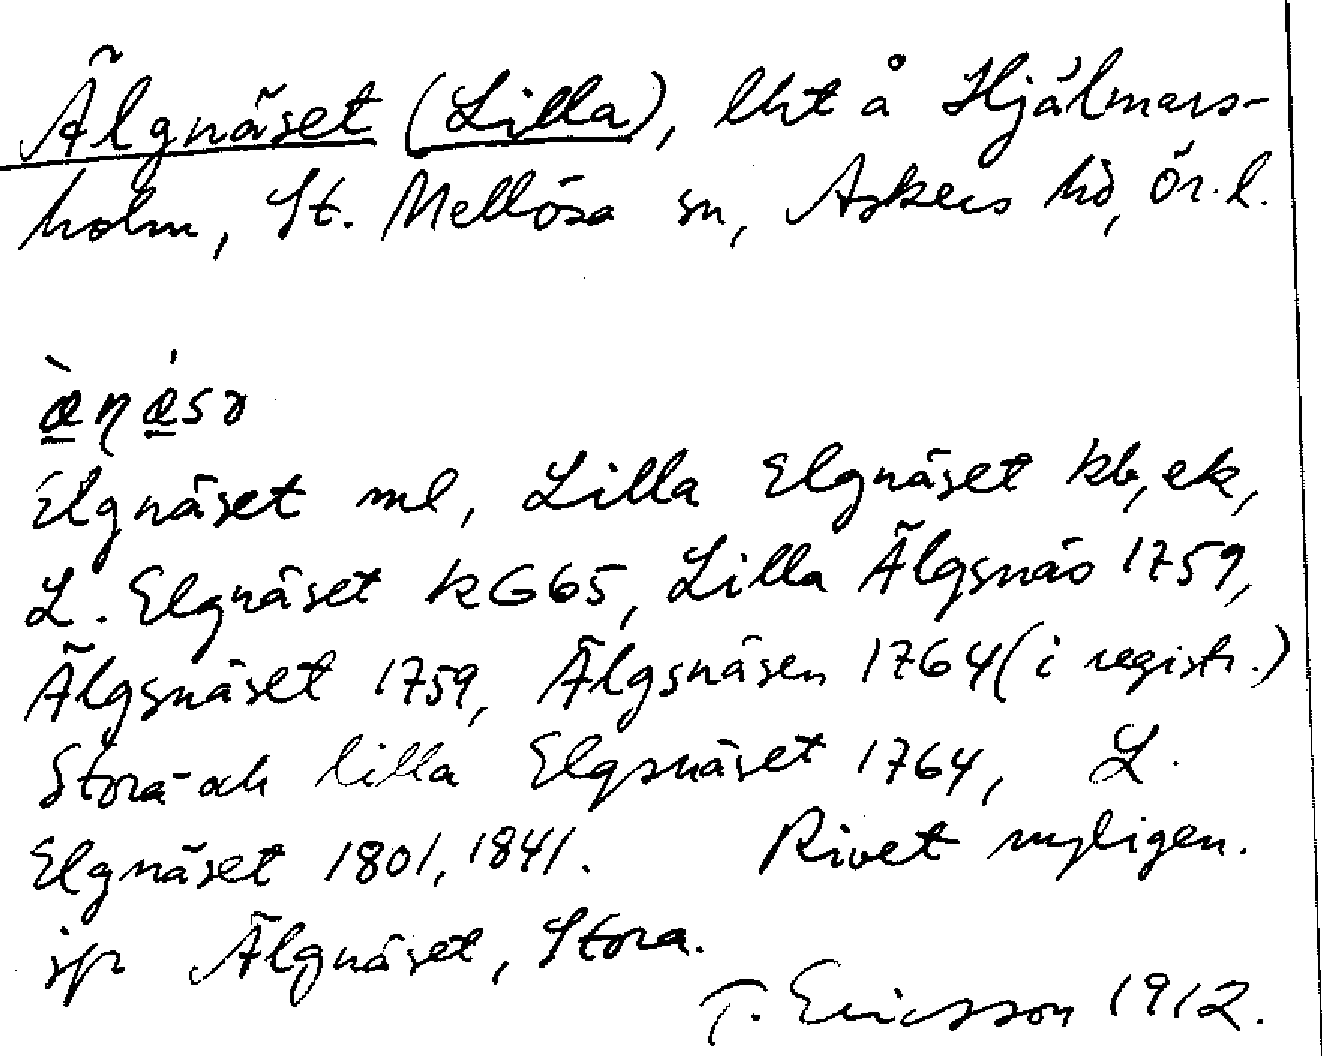 Älgnäset (Lilla), lht å Hjälmars-
holm, St. Mellösa sn, Askers hd, Ör. l.
æ̀ŋǽsə
Elgnäset ml, Lilla Elgnäset kb, ek,
L. Elgnäset kG65, Lilla Älgsnäs 1759,
Älgsnäset 1759, Älgsnäsen 1764 (i registr.)
Stora- och lilla Elgsnäset 1764, L.
Elgnäset 1801, 1841. Rivet nyligen.
jfr Älgnäset, Stora.
T. Ericsson 1912.